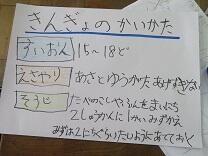 きんぎょのかいかた
すいおん 15~18ど
えさやり あさとゆうがたあげすぎない
そうじ たべのこしやふんをまいにち
2しゅうかんに1かいみずかえ
みずは2にちぐらいたいようにあてておく